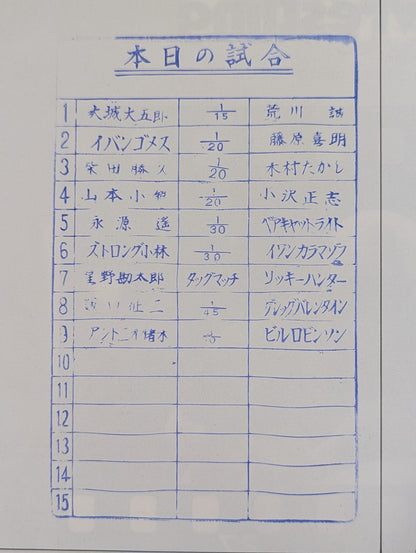 本日の試合
1 大城大五郎 1/15 荒川 誠
2 イバンゴメス 1/20 藤原喜明
3 柴田勝久 1/20 木村たかし
4 山本小鉄 1/20 小沢正志
5 永源遥 1/30 ベアキャットライト
6 ストロング小林 1/30 イゾンカラマゾフ
7 星野勘太郎 タッグマッチ リッキーハンター
8 二 1/45 グレッグバレンタイン
9 アントニオ猪木 ビルロビンソン
10
11
12
13
14
15